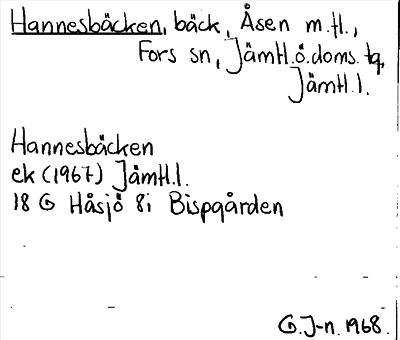 Hannesbäcken, bäck, Åsen m.fl.,
Fors sn, Jämtl.ö.doms. tg,
Jämtl.l.
Hannesbäcken
ek (1967) Jämtl.l.
18 G Håsjö 8i Bispgården
G.J-n. 1968.